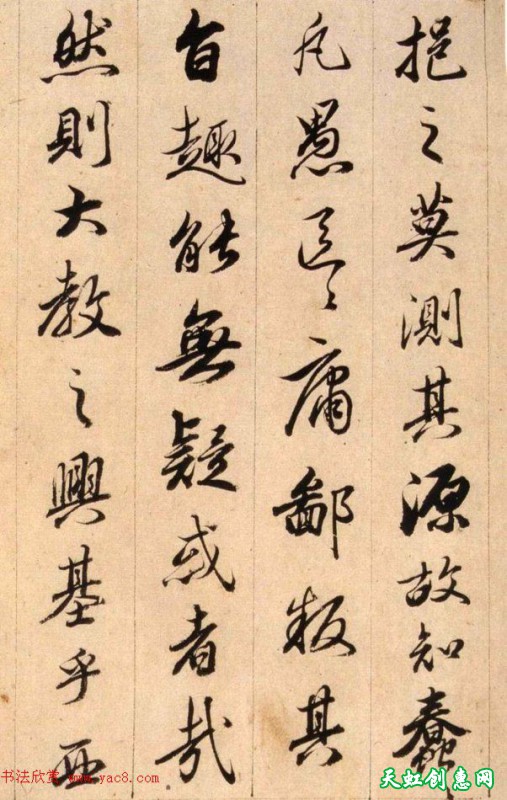 挹之莫測其源故知蠢
凡愚區〻庸鄙投其
旨趣能無疑惑者哉
然則大教之興基乎西
书法欣赏 www.yac8.com
天虹创惠网